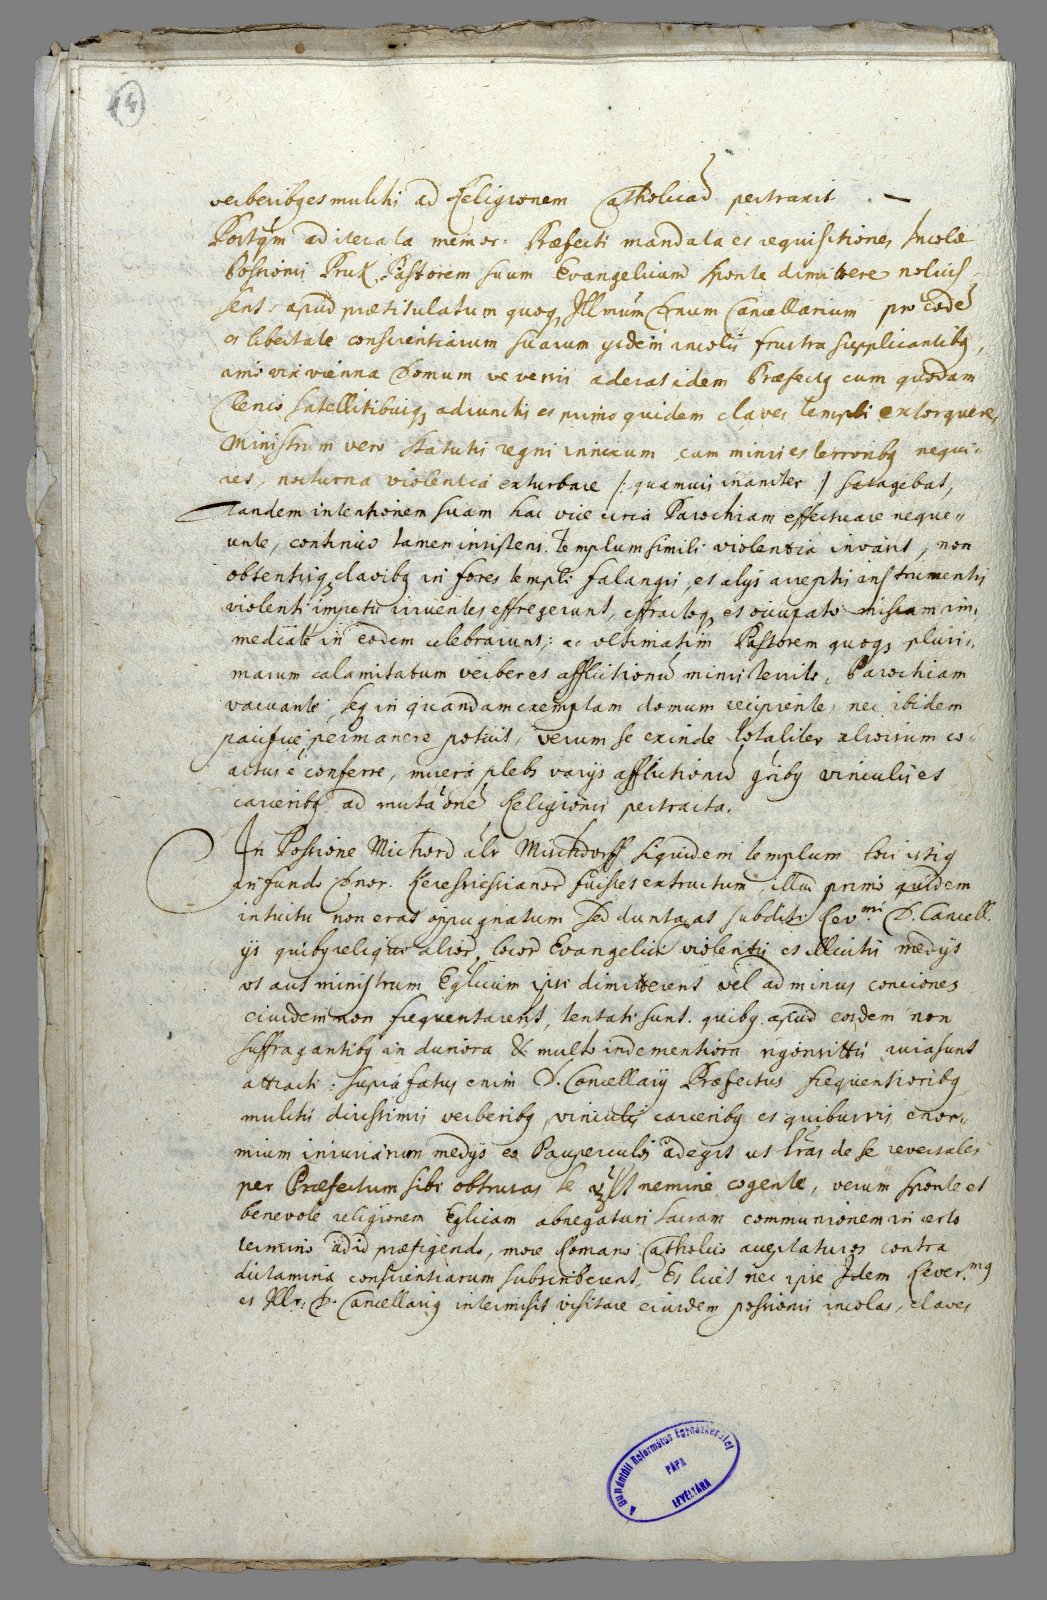 14
verberibq et mulctis ad Religionem Catholicā pertraxit. —
Postqm ad iterata memor: Præfecti mandata et requisitiones Incolæ
Possionis Pruk Pastorem suum Evangelicum sponte dimittere noluis-
sent: apud prætitulatum quoq Illmum Dnum Cancellarium pro eodē
et libertate conscientiarum suarum ijsdem incolis frustra supplicantibq,
Vienna Domum aderat idem Præfectq cum quodam
satellitibusq adiunctis et primo quidem claves templi extorquere,
Ministrum vero statutis regni innixum, cum minis et terroribq nequi-
ret, nocturna violentia exturbare /: quamvis inaniter :/ satagebat,
Tandem intentionem suam hac vice circa Parochiam effectuare neque-
unte, continuo tamen insistens. Templum simili violentia invasit, non
obtentisq clavibq in fores templi falangis, et alijs arreptis instrumentis
violenti impetu irruentes effregerunt, effractoq et occupato missam im-
mediate in eodem celebrarunt: ac ultimatim Pastorem quoq pluri-
marum calamitatum verber et afflictionū minis territo, Parochiam
vacuante, seq in quandam exemptam domum recipiente, nec ibidem
pacifice permanere potuit, verum se exinde totaliter aliorsum co-
actus ē conferre, misera plebs varijs afflictionū gribq vinculis et
carceribq ad mutāonē Religionis pertracta.
In Possione Michord als Mischdorff siquidem templum loci istiq
in fundo Dnor. fuisset extructum, illud primo quidem
intuitu non erat oppugnatum Sed duntaxat subditi Revmi D. Cancell.
ijs quibq reliquæ alior locor Evangelici violentis et illicitis medijs
ut aut ministrum Eglicum ipsi dimitterent vel ad minus conciones
eiusdem non frequentarent, tentati sunt. quibq apud eosdem non
suffragantibq in duriora & multo inclementiora
attracti: supra fatus enim D. Cancellarij Præfectus frequentioribq
mulctis dirissimis verberibq, vinculis carceribq et quibusvis enor-
mium iniuriarum medijs eo Pauperculos adegit ut lras de se reversales
per Præfectum sibi obtrusas se nemine cogente, verum sponte et
benevole religionem Eglicam abnegaturi sacram communionem in certo
termino ad id præfigendo, more Romano Catholico accepturos contra
dictamina conscientiarum subscriberent, Et licet nec ipse Idem Rever.mq
et Illr: D. Cancellariq intermisit visitare eiusdem possionis incolas, claves
A Dunántúli Református Egyházkerület
PÁPA
LEVÉLTÁRA